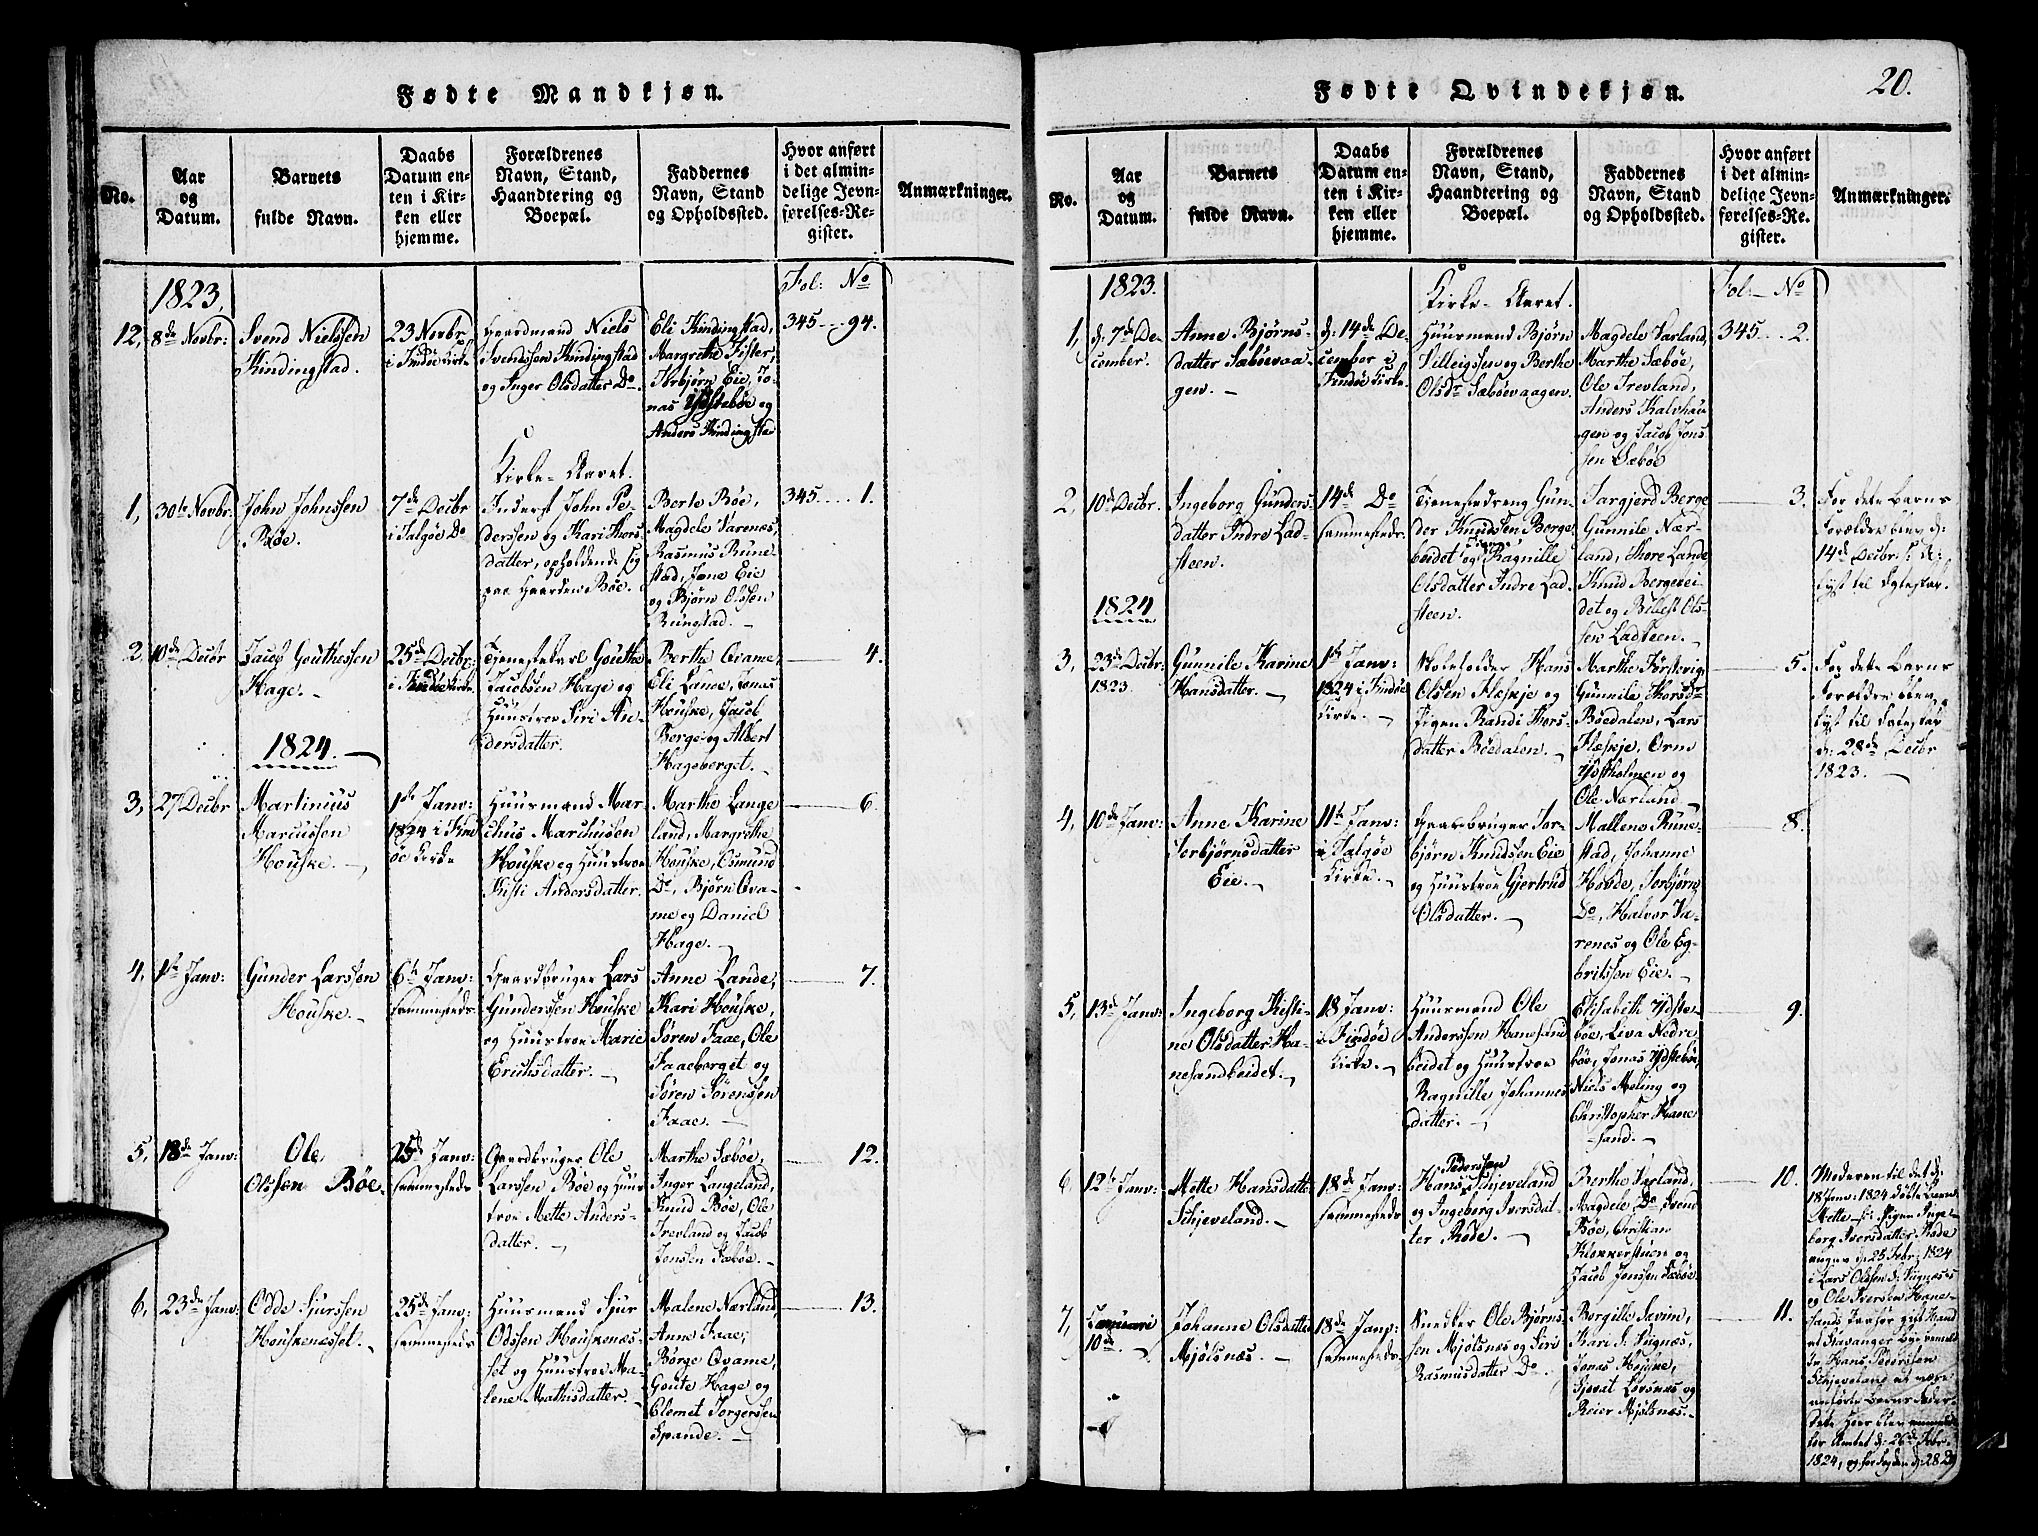 Fødte Mandkjøn.
No.
Aar
og
Datum.
Barnets
fulde Navn.
Daabs
Datum en-
ten i Kir-
ken eller
hjemme.
Forældrenes
Navn, Stand,
Haandtering og
Boepæl.
Faddernes
Navn, Stand
og Opholdssted.
Hvor anført
i det almin-
delige Jevn-
førelses-Re-
gister.
Anmærkninger.
1823.
Fol: No
12,
8de Novbr:
Svend Nielssen
Kindingstad.
23 Novbr
i Findöe Kirke
Gaardmand Niels
Svendssen Kindingstad
og Inger Olsdatter Do
Eli Kindingstad,
Margrethe Fister,
Torbjørn Eie, Jo-
nas Ydstebøe og
Anders Kindingstad
345 94.
Kirke-Aaret.
1,
30te Novbr:
John Johnssen
Bøe.
7de Decbr
i Talgöe Do
Inderst John Pe-
derssen og Kari Thors
datter, opholdende sig
paa Gaarden Bøe.
Berte Bøe,
Magdele Varenæs,
Rasmus Rune-
stad, Jane Eie
og Bjørn Olssen
Rungstad.
345 1.
2,
10de Decbr
Jacob Gouthessen
Hage.
25de Decbr:
i Findöe Kirke.
Tjenestekarl Gouthe
Jacobsen Hage og
Huustroe Siri An-
dersdatter.
Berthe Qvame,
Eli Lande, Jonas
Houske, Jacob
Berge og Albert
Hageberget.
4.
1824.
3,
27 Decbr
Martinius
Marcussen
Houske.
1ste Janv:
1824 i Find
öe Kirke
Huusmand Mar-
chus Marchusen
Houske og Huustroe
Kisti Andersdatter.
Marthe Lange
land, Margrethe
Houske, Osmund
Do, Bjørn Qva-
me og Daniel
Hage.
6.
4,
1ste Janv:
Gunder Larssen
Houske.
6te Janv:
sammesteds.
Gaardbruger Lars
Gunderssen Houske
og Huustroe Marie
Erichsdatter.
Anne Lande,
Kari Houske,
Søren Faae, Ole
Faaeberget og
Søren Sørenssen
Faae.
7.
5,
18de Janv:
Ole
Olssen Bøe.
25de Janv:
sammesteds
Gaardbruger Ole
Larssen Bøe og Huus
troe Mette Anders-
datter.
Marthe Sæbøe,
Inger Langeland,
Knud Bøe, Ole
Trevland og Jacob
Jonssen Sæbøe.
12.
6,
23de Janv:
Odde Sjurssen
Houskenæsset.
25de Janv:
sammesteds
Huusmand Sjur
Odssen Houskenæs-
set og Huustroe Ma-
lene Mathisdatter.
Malene Nærland,
Anne Faae,
Børge Qvame,
Goute Hage og
Clemet Torgerssen
Spande.
13.
Fødte Qvindekjøn.
20.
No.
Aar
og
Datum.
Barnets
fulde Navn.
Daabs
Datum en-
ten i Kir-
ken eller
hjemme.
Forældrenes
Navn, Stand,
Haandtering og
Boepæl.
Faddernes
Navn, Stand
og Opholdssted.
Hvor anført
i det almin-
delige Jevn-
førelses-Re-
gister.
Anmærkninger.
1823.
Kirke-Aaret.
Fol. No
1,
d: 7de De-
cember.
Anne Bjørns-
datter Sæbøevaa-
gen.
d: 14de De-
cember i
Findöe Kirke.
Huusmand Bjørn
Villeigssen og Berthe
Olsdr Sæbøevaagen.
Magdele Varland,
Marthe Sæbøe,
Ole Trevland,
Anders Kalvhau
gen og Jacob Jons
sen Sæbøe
345 2.
2,
10de Decbr.
Ingeborg Gunders
datter Indre Lad-
steen.
14de Do
sammesteds.
Tjenestedreng Gun-
der Knudsen Berge
beidet og Pigen Ragnille
Olsdatter Indre Lad
steen.
Targjerd Berge
Gunnile Nær-
land, Thore Lande
Knud Bergebei-
det og Ols-
sen Ladsteen.
3.
For dette Barns
Forældre blev d:
14de Decbr
lyst til Egteskab.
1824
3,
23de Decbr.
1823.
Gunnile Karine
Hansdatter.
1ste Janv:
1824 i Findöe
Kirke.
Skoleholder Hans
Olsen Flesje og
Pigen Randi Thors-
datter Bøedalen.
Marthe Førsvig
Gunnila Thorsdr
Bøedalen, Lars
Flesje, Orm
Ydstholmen og
Ole Nærland.
5.
For dette Barns
Forældre blev
lyst til Egteskab
d: 28de Decbr
1823.
4,
10de Janv:
Anne Karine
Torbjørnsdatter
Eie.
11te Janv:
i Talgöe
Kirke.
Gaardbruger Tor-
bjørn Knudsen Eie
og Huustroe Gjertrud
Olsdatter.
Mallene Rune-
stad, Johanne
Hovde, Torbjørn
Do, Halvor Va-
renes og Ole Eg-
britssen Eie.
8.
5,
13de Janv:
Ingeborg Kisti-
ne Olsdatter Ha-
nesandbeidet.
18 Janv:
i Findöe
Kirke.
Huusmand Ole
Anderssen Hanesand
beidet og Huustroe
Ragnille Johannes
datter.
Elisabeth Ydste-
bøe, Liva Nedre-
bøe, Jonas Ydstebøe,
Niels Meling og
Christopher Hane
sand.
9.
6,
12te Janv:
Mette Hansdatter
Skjeveland.
18de Janv:
sammesteds
Hans Pederssen Skjeveland
og Ingeborg Iversdat-
ter Røde.
Berthe Varland,
Magdele Do Svend
Bøe, Christian
Klokkerstuen og
Jacob Jonssen Sæbøe.
10.
Moderen til det d:
18 Janv: 1824 døbte Barn
Mette Pigen Inge
borg Iversdatter Røde
angav d: 25 Febr: 1824
i Lars Olssen d: Signæses
og Ole Iversen Hane-
sands gift Mand
af Stavanger Bye
Hans Pederssen
Skjeveland at være
Barns Fader.
Dette
for Amtet d: 26de Febr.
1824, og for Fogden d: 28de
7,
Januarii
10de
Johanne Olsdatter
Mjølsnæs.
18de Janv:
sammesteds.
Snedker Ole Bjørns
sen Mjølsnæs og Siri
Rasmusdatter Do.
Borgille Sevim,
Kari S. Signæs,
Jonas Houske,
Sjovat Lovsnæs og
Reier Mjølsnæs.
11.